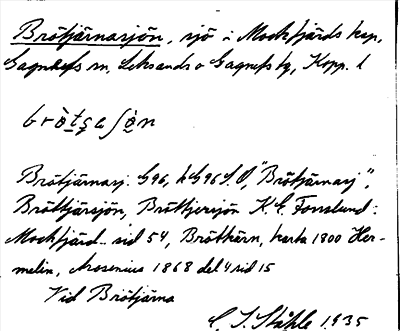 Brötjärnasjön, sjö i Mockfjärds kap,
Gagnefs sn, Leksands o Gagnefs tg, Kopp. l
Brötjärnasj. G96, "Brötjärnasj",
Bröttjärsjön, Bröttjersjön K.E. Forsslund:
Mockfjärd sid 54, Brötkärn, karta 1800 Her-
melin, Arosenius 1868 del 4 sid 15
Vid Brötjärna
C. I. Ståhle 1935